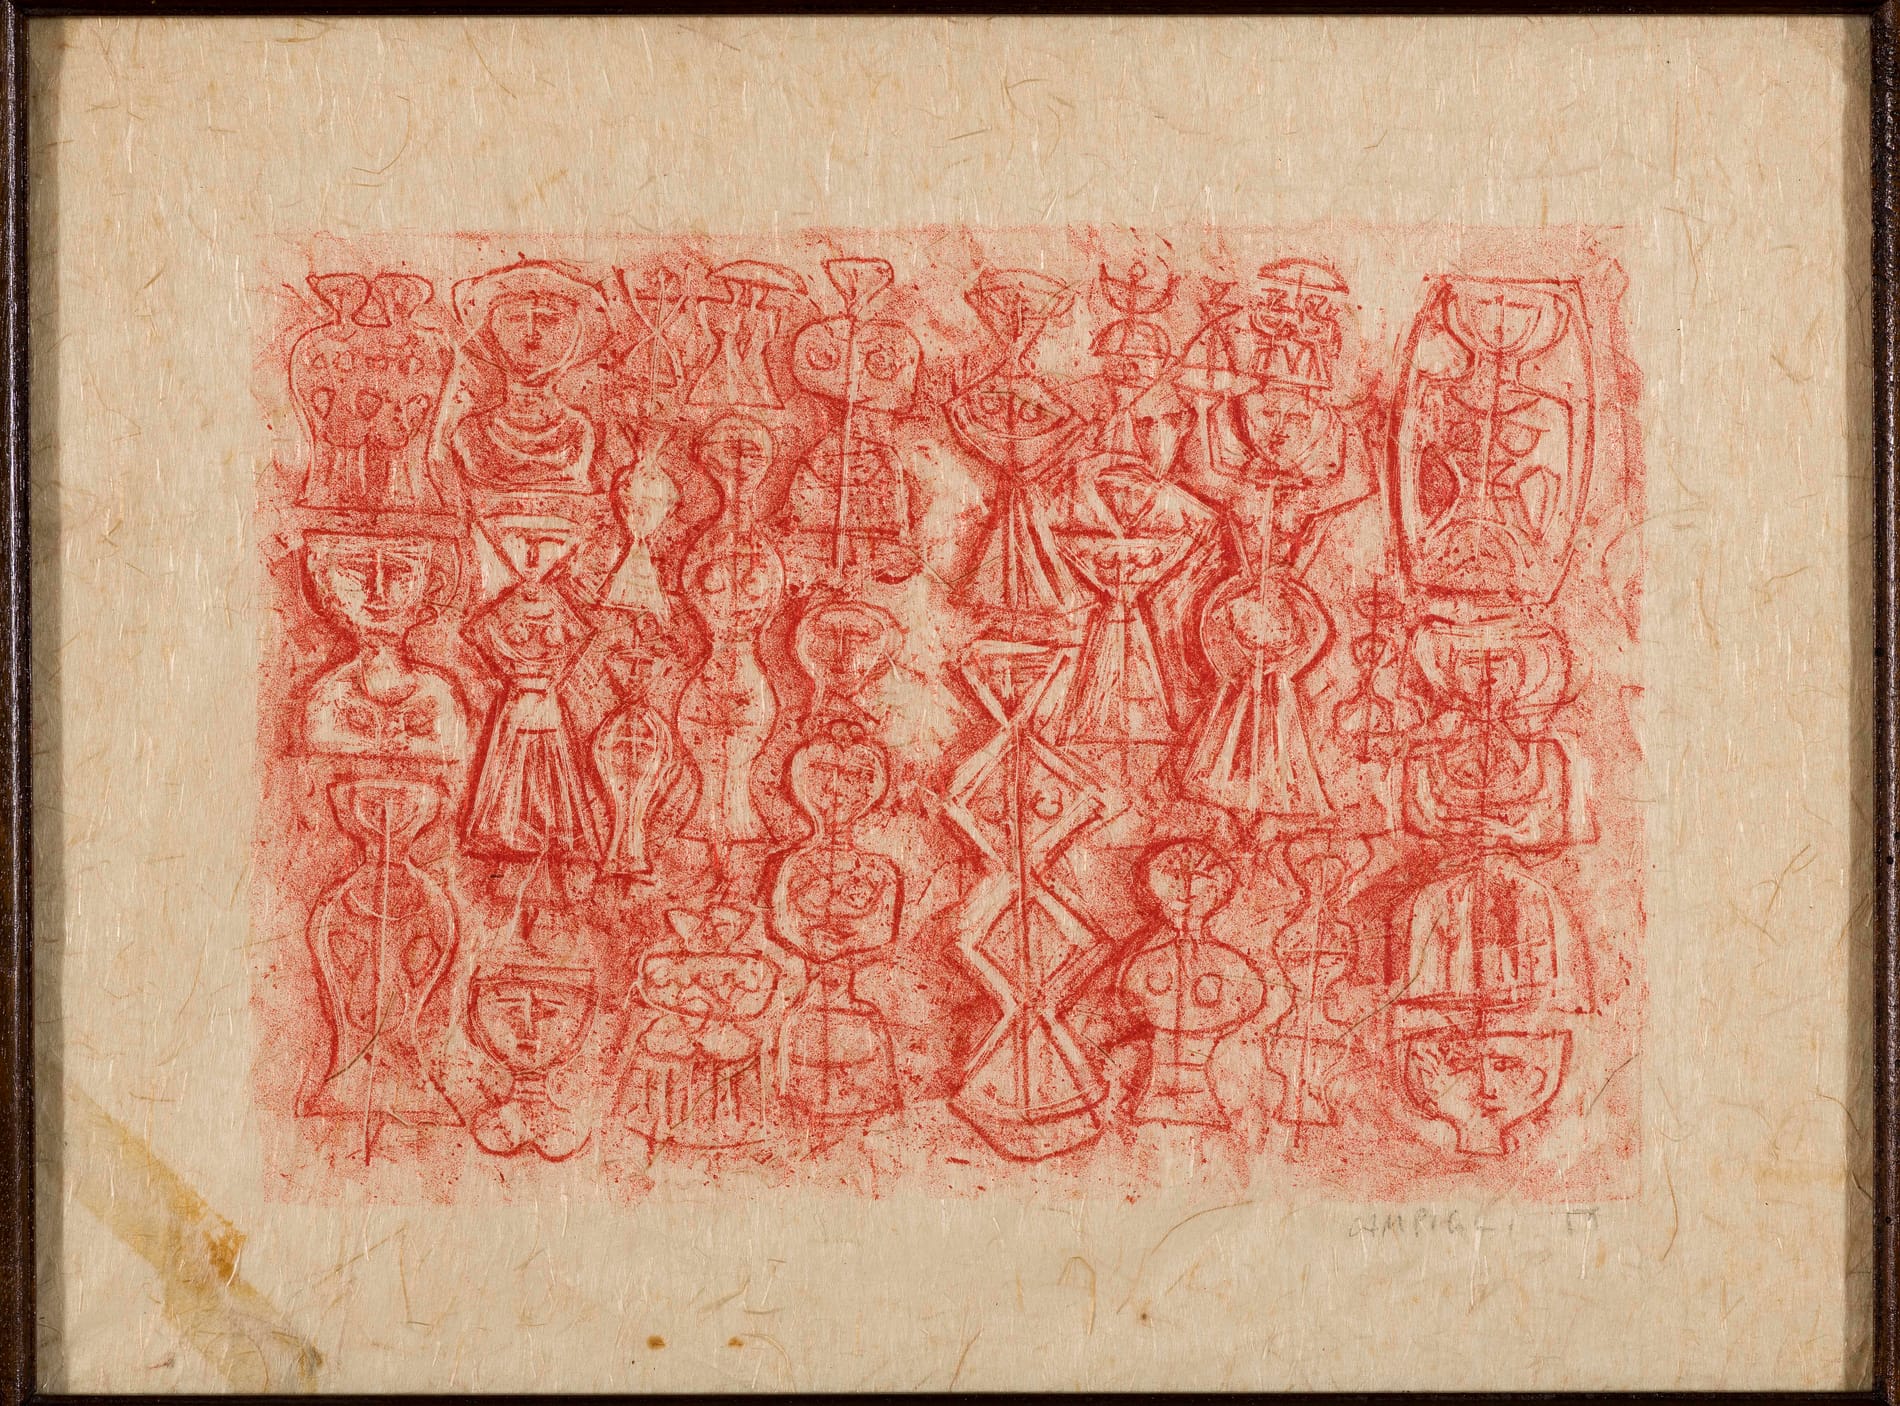 CAMPIGLI 55